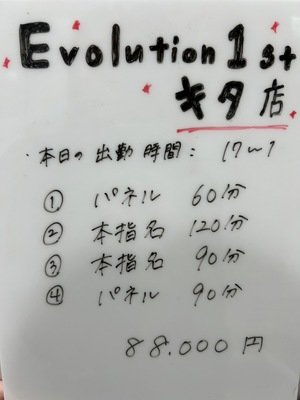 Evolution 1st
キタ店
・本日の出勤時間： 17〜1
① パネル 60分
② 本指名 120分
③ 本指名 90分
④ パネル 90分
88.000円